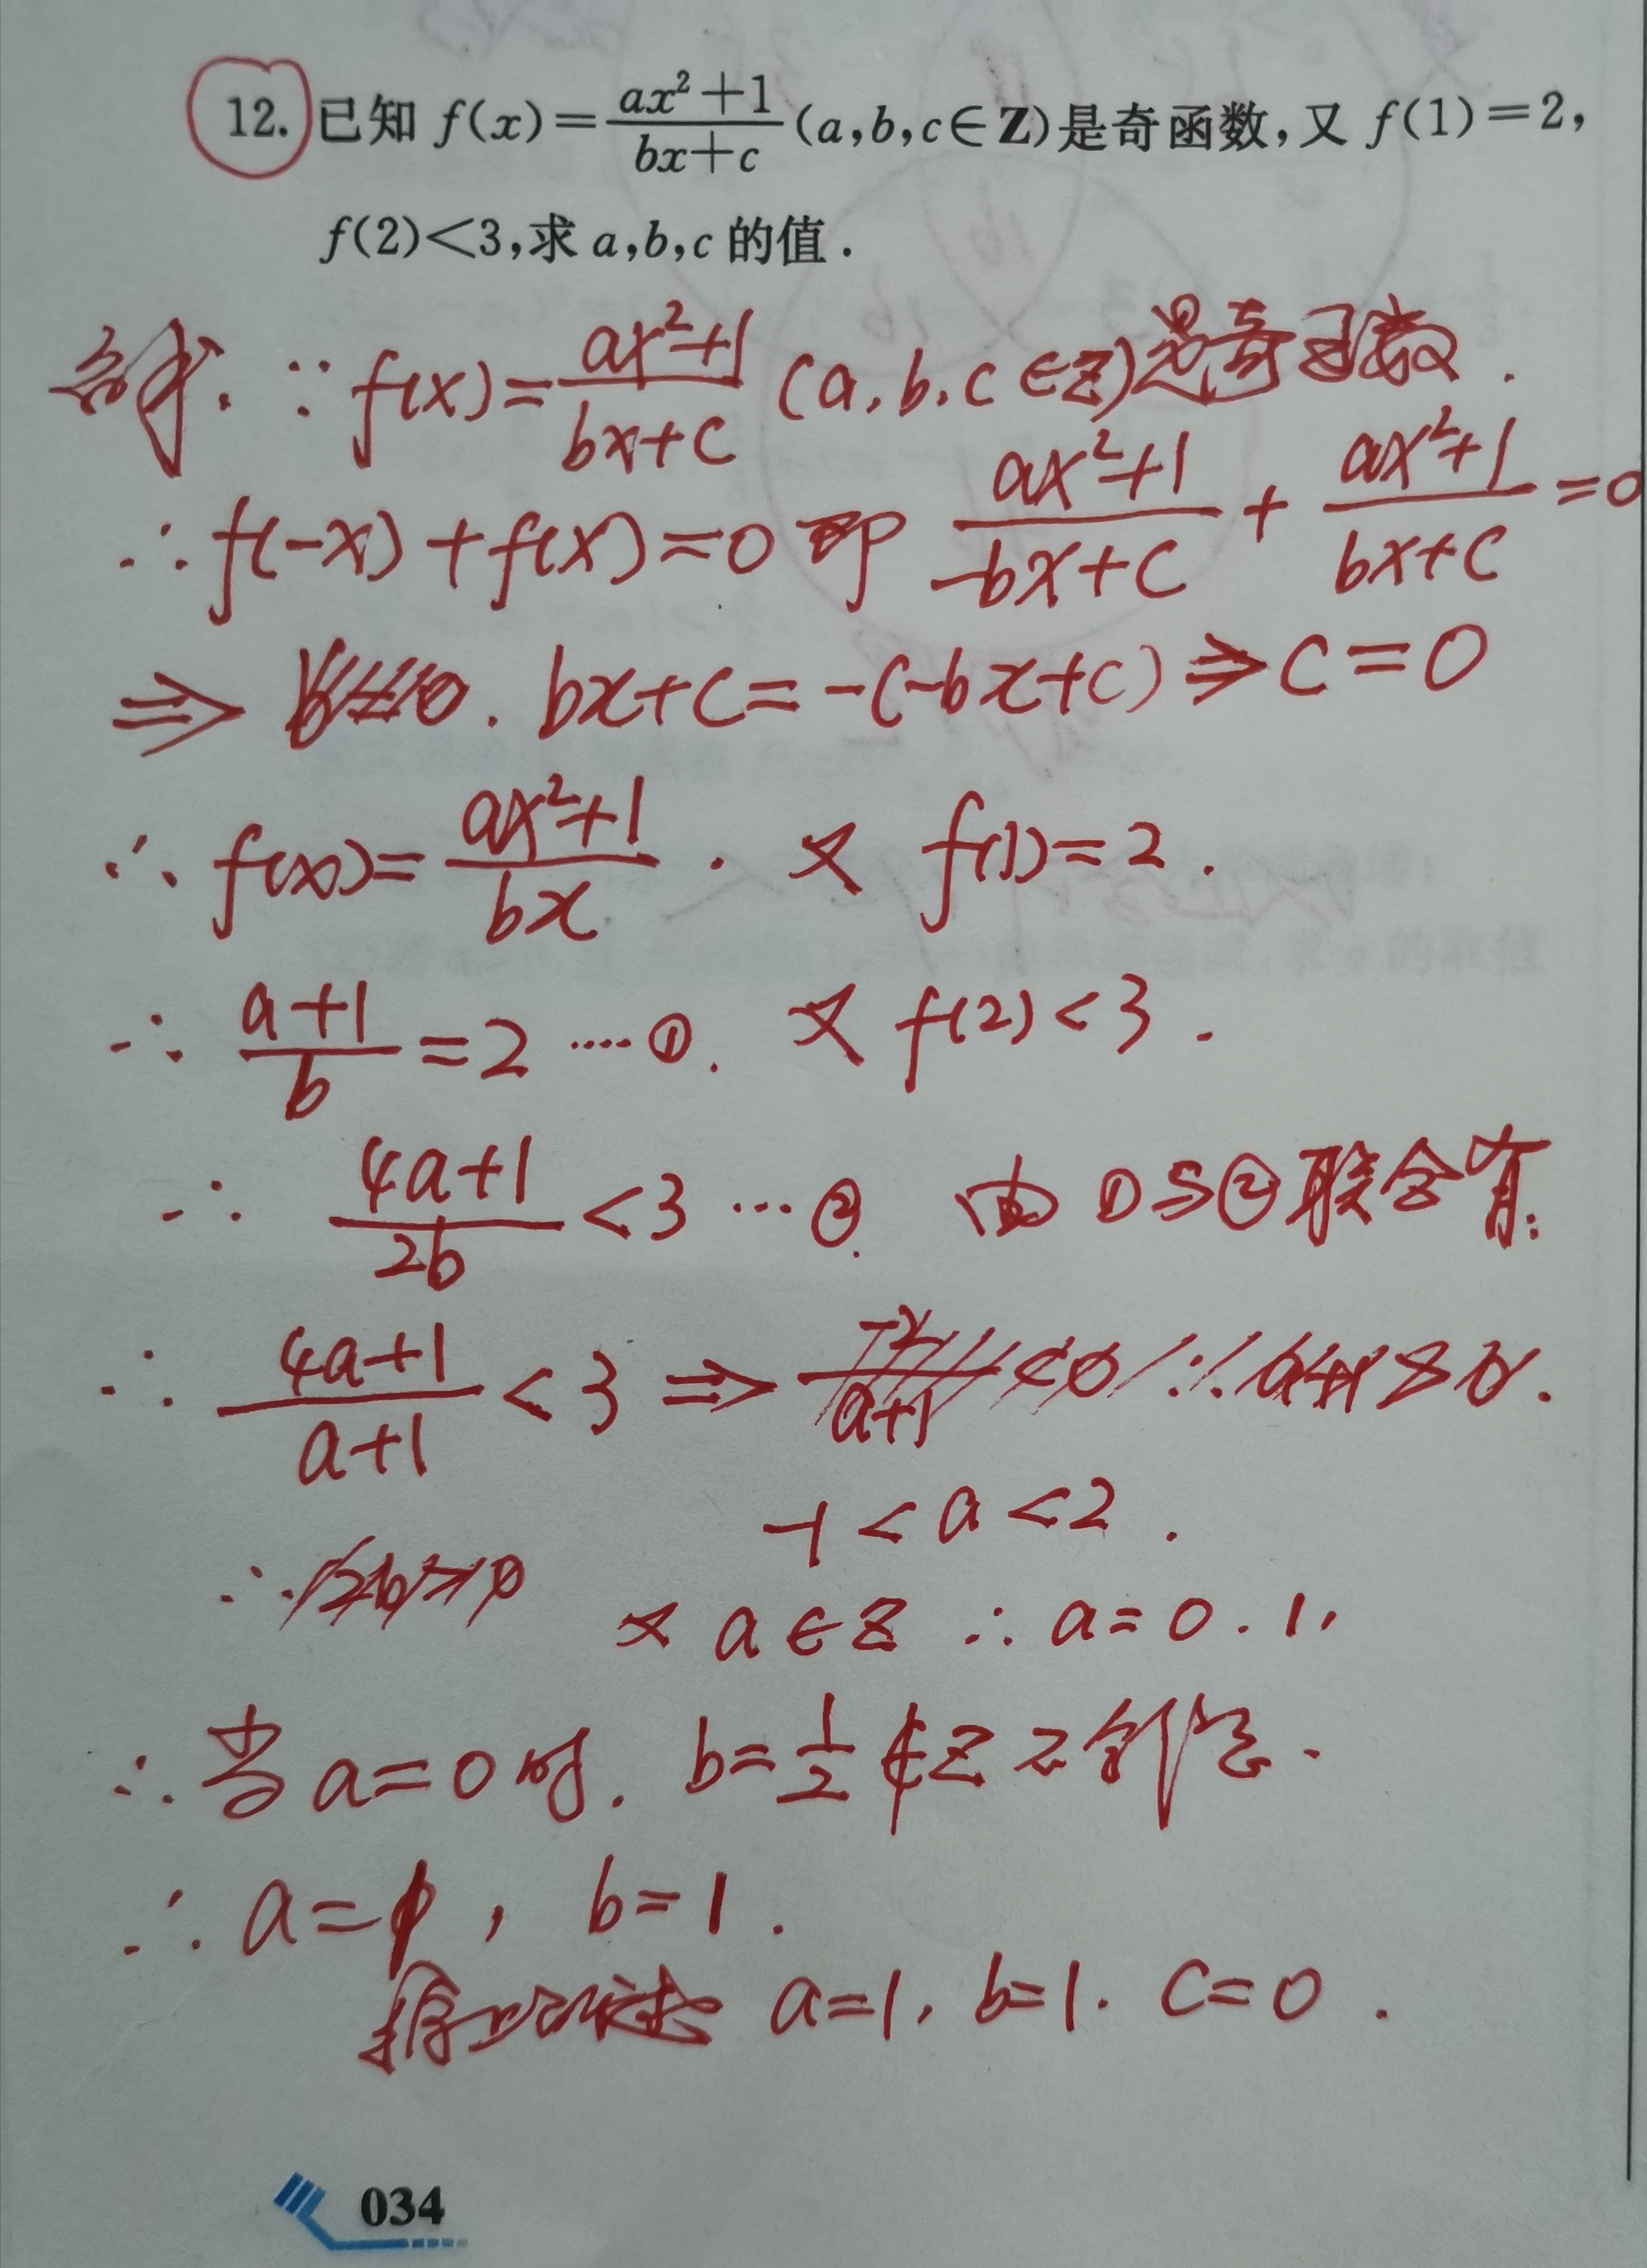 12. 已知 f(x)=\frac{ax²+1}{bx+c}(a,b,c∈Z)是奇函数,又 f(1)=2,
f(2)<3,求 a,b,c 的值.
解. ∵ f(x)=\frac{ax²+1}{bx+c} (a,b,c∈Z)是奇函数.
∴ f(-x)+f(x)=0 即 \frac{ax²+1}{-bx+c}+\frac{ax²+1}{bx+c}=0
⇒ bx+c=-(-bx+c) ⇒ c=0
∴ f(x)=\frac{ax²+1}{bx}. 又 f(1)=2.
∴ \frac{a+1}{b}=2 ····①. 又 f(2)<3.
∴ \frac{4a+1}{2b}<3 ···②. 由①与②联合有:
∴ \frac{4a+1}{a+1}<3 ⇒
-1<a<2.
又 a∈Z ∴ a=0.1,
∴ 当 a=0时. b=\frac{1}{2}∉Z 不合题意.
∴ a=1, b=1.
综上所述 a=1, b=1. c=0.
034